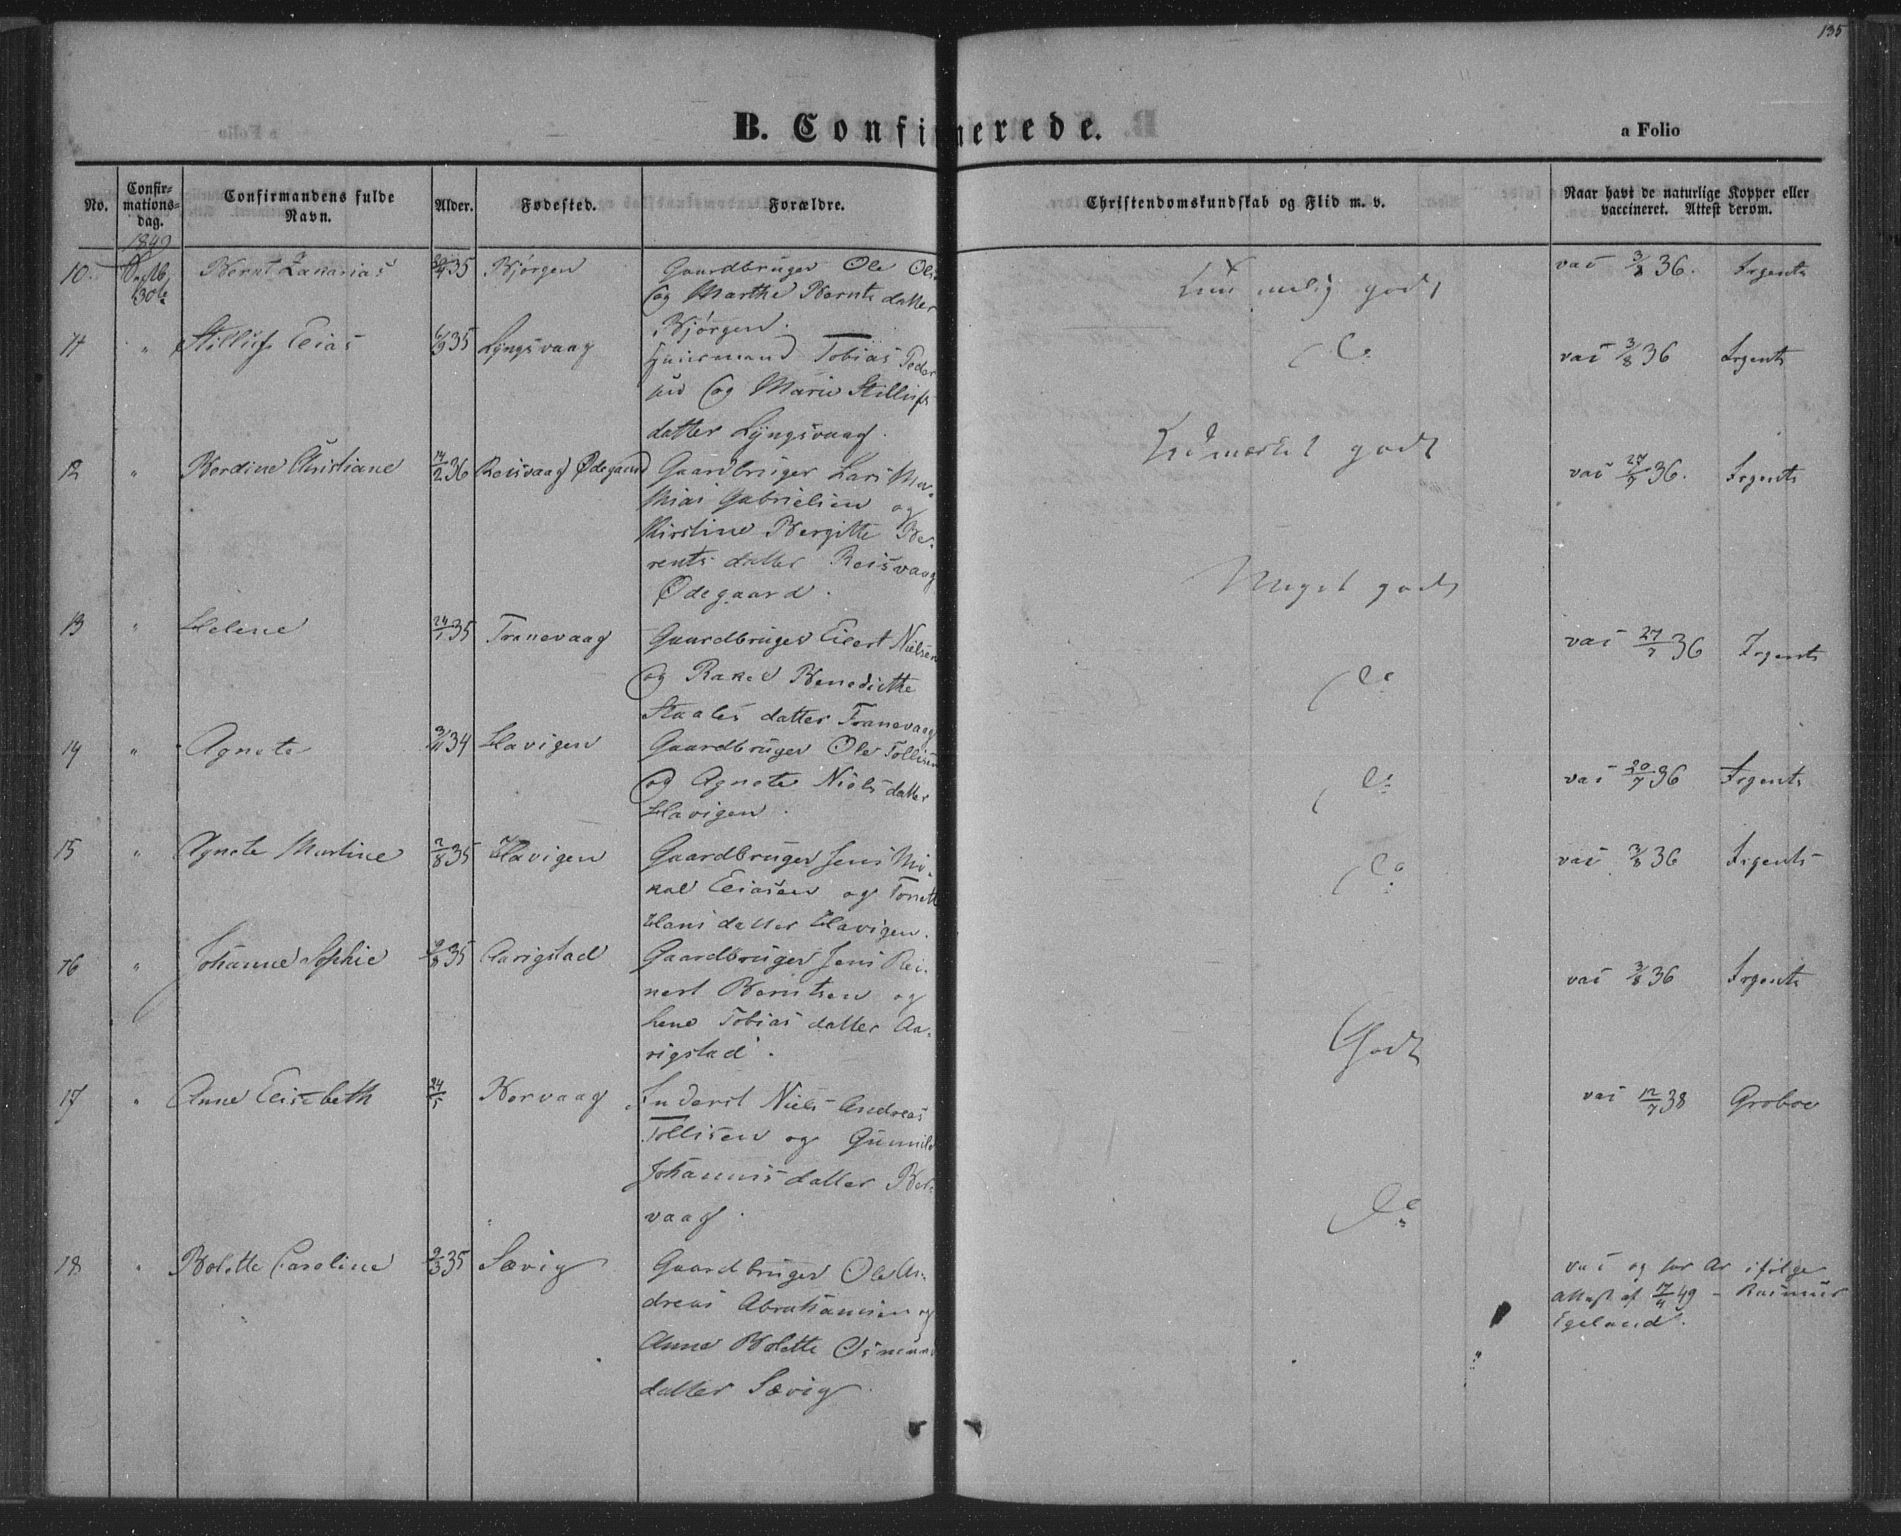 135
B. Confirmerede.
a Folio
No.
Confir-
mations-
dag.
Confirmandens fulde
Navn.
Alder.
Fødested.
Forældre.
Christendomskundskab og Flid m. v.
Naar havt de naturlige Kopper eller
vaccineret. Attest derom.
1849
10. Septb. 30te Bernt Zakarias 35 Bjørgen Gaardbruger Ole Ols
og Marthe Bernts datter
Bjørgen.
godt
vac 3/8 36. Irgents
11 " Elias 35 Lyngsvaag Huusmand Tobias Peder
sen og Marie
datter Lyngsvaag.
do
vac 3/8 36 Irgents
12 " Berdine Christiane 14/2 36 Reisvaag Ødegaard Gaardbruger Lars Ma-
thias Gabrielsen og
Kirstine Bergitte Be-
rents datter Reisvaag
Ødegaard.
Udmærket godt
vac 27/7 36. Irgents
13 " Helene 24/1 35 Tranevaag Gaardbruger Eilert Nielsen
og Rakel Benedicthe
Staales datter Tranevaag
Meget godt
vac 27/7 36 Irgents
14 " Agnete 3/11 34 Havigen Gaardbruger Ole Tollisen
og Agnete Niels datter
Havigen.
do
vac 20/7 36 Irgents
15 " Agnete Martine 2/8 35 Havigen Gaardbruger Jens Mi-
kal Eliasen og Tonette
Hans datter Havigen.
do
vac 3/8 36 Irgents
16 " Johanne Sophie 35 Aarigstad Gaardbruger Jens Rei-
nert Berntsen og
Lene Tobias datter Aa-
rigstad.
do
vac 3/8 36 Irgents
17 " Anne Elisebeth 24/5 Korvaag Inderst Niels Andreas
Tollisen og Gunnild
Johannis datter Kor-
vaag.
Godt
vac 12/7 38 Groboe
18 " Bolette Caroline 2/3 35 Sævig Gaardbruger Ole An-
dreas Abrahamsen og
Anne Bolette Osmunds
datter Sævig
do
vac og har Ar ifølge
Attest af 7/4 49 - Rasmus
Egeland.